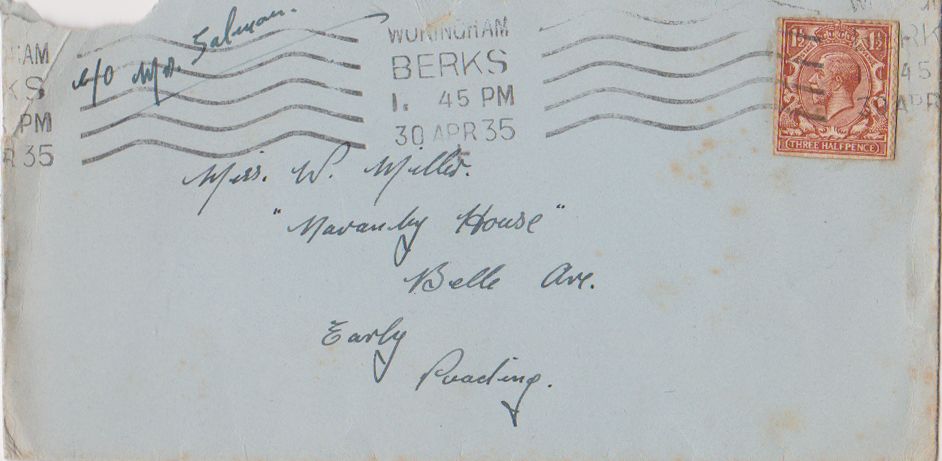 c/o Mrs. Salman.
WOKINGHAM
BERKS
1. 45 PM
30 APR 35
HAM
KS
PM
R 35
1½ 1½
THREE HALFPENCE
RK
45
30 APR
Miss. W. Millis.
House"
Belle Ave.
Early
Reading.